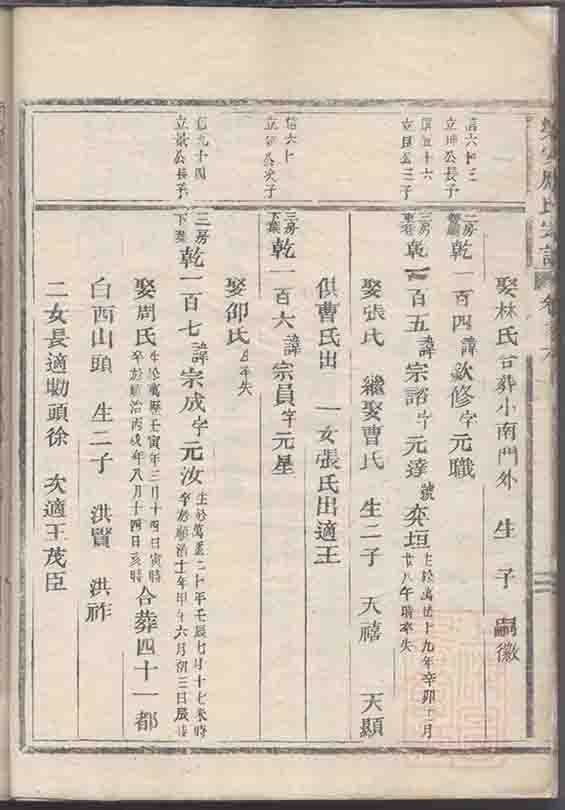 娶林氏 合葬小南門外 生 子 嗣徽
信六十三
立坤公長子
二房
乾一百四諱欽修字元職
信五十六
立昆公三子
三房
東巷
乾一百五諱宗諮字元達號奕垣 生於萬曆十九年辛卯十月
廿八午時卒失
娶張氏 繼娶曹氏 生二子 天禧 天顯
俱曹氏出 一女張氏出適王
信六十
立 公次子
三房
下葉
乾一百六諱宗員字元星
娶邵氏 生卒失
信九十四
立 公長子
三房
下葉
乾一百七諱宗成字元汝 生於萬曆二十年壬辰七月十七未時
卒於順治十一年甲午六月初三日辰時
娶周氏 生於萬曆壬寅年三月十四日寅時
卒於順治丙戌年八月十四日亥時 合葬四十一都
白西山頭 生二子 洪賢 洪祚
二女長適坳頭徐 次適王茂臣